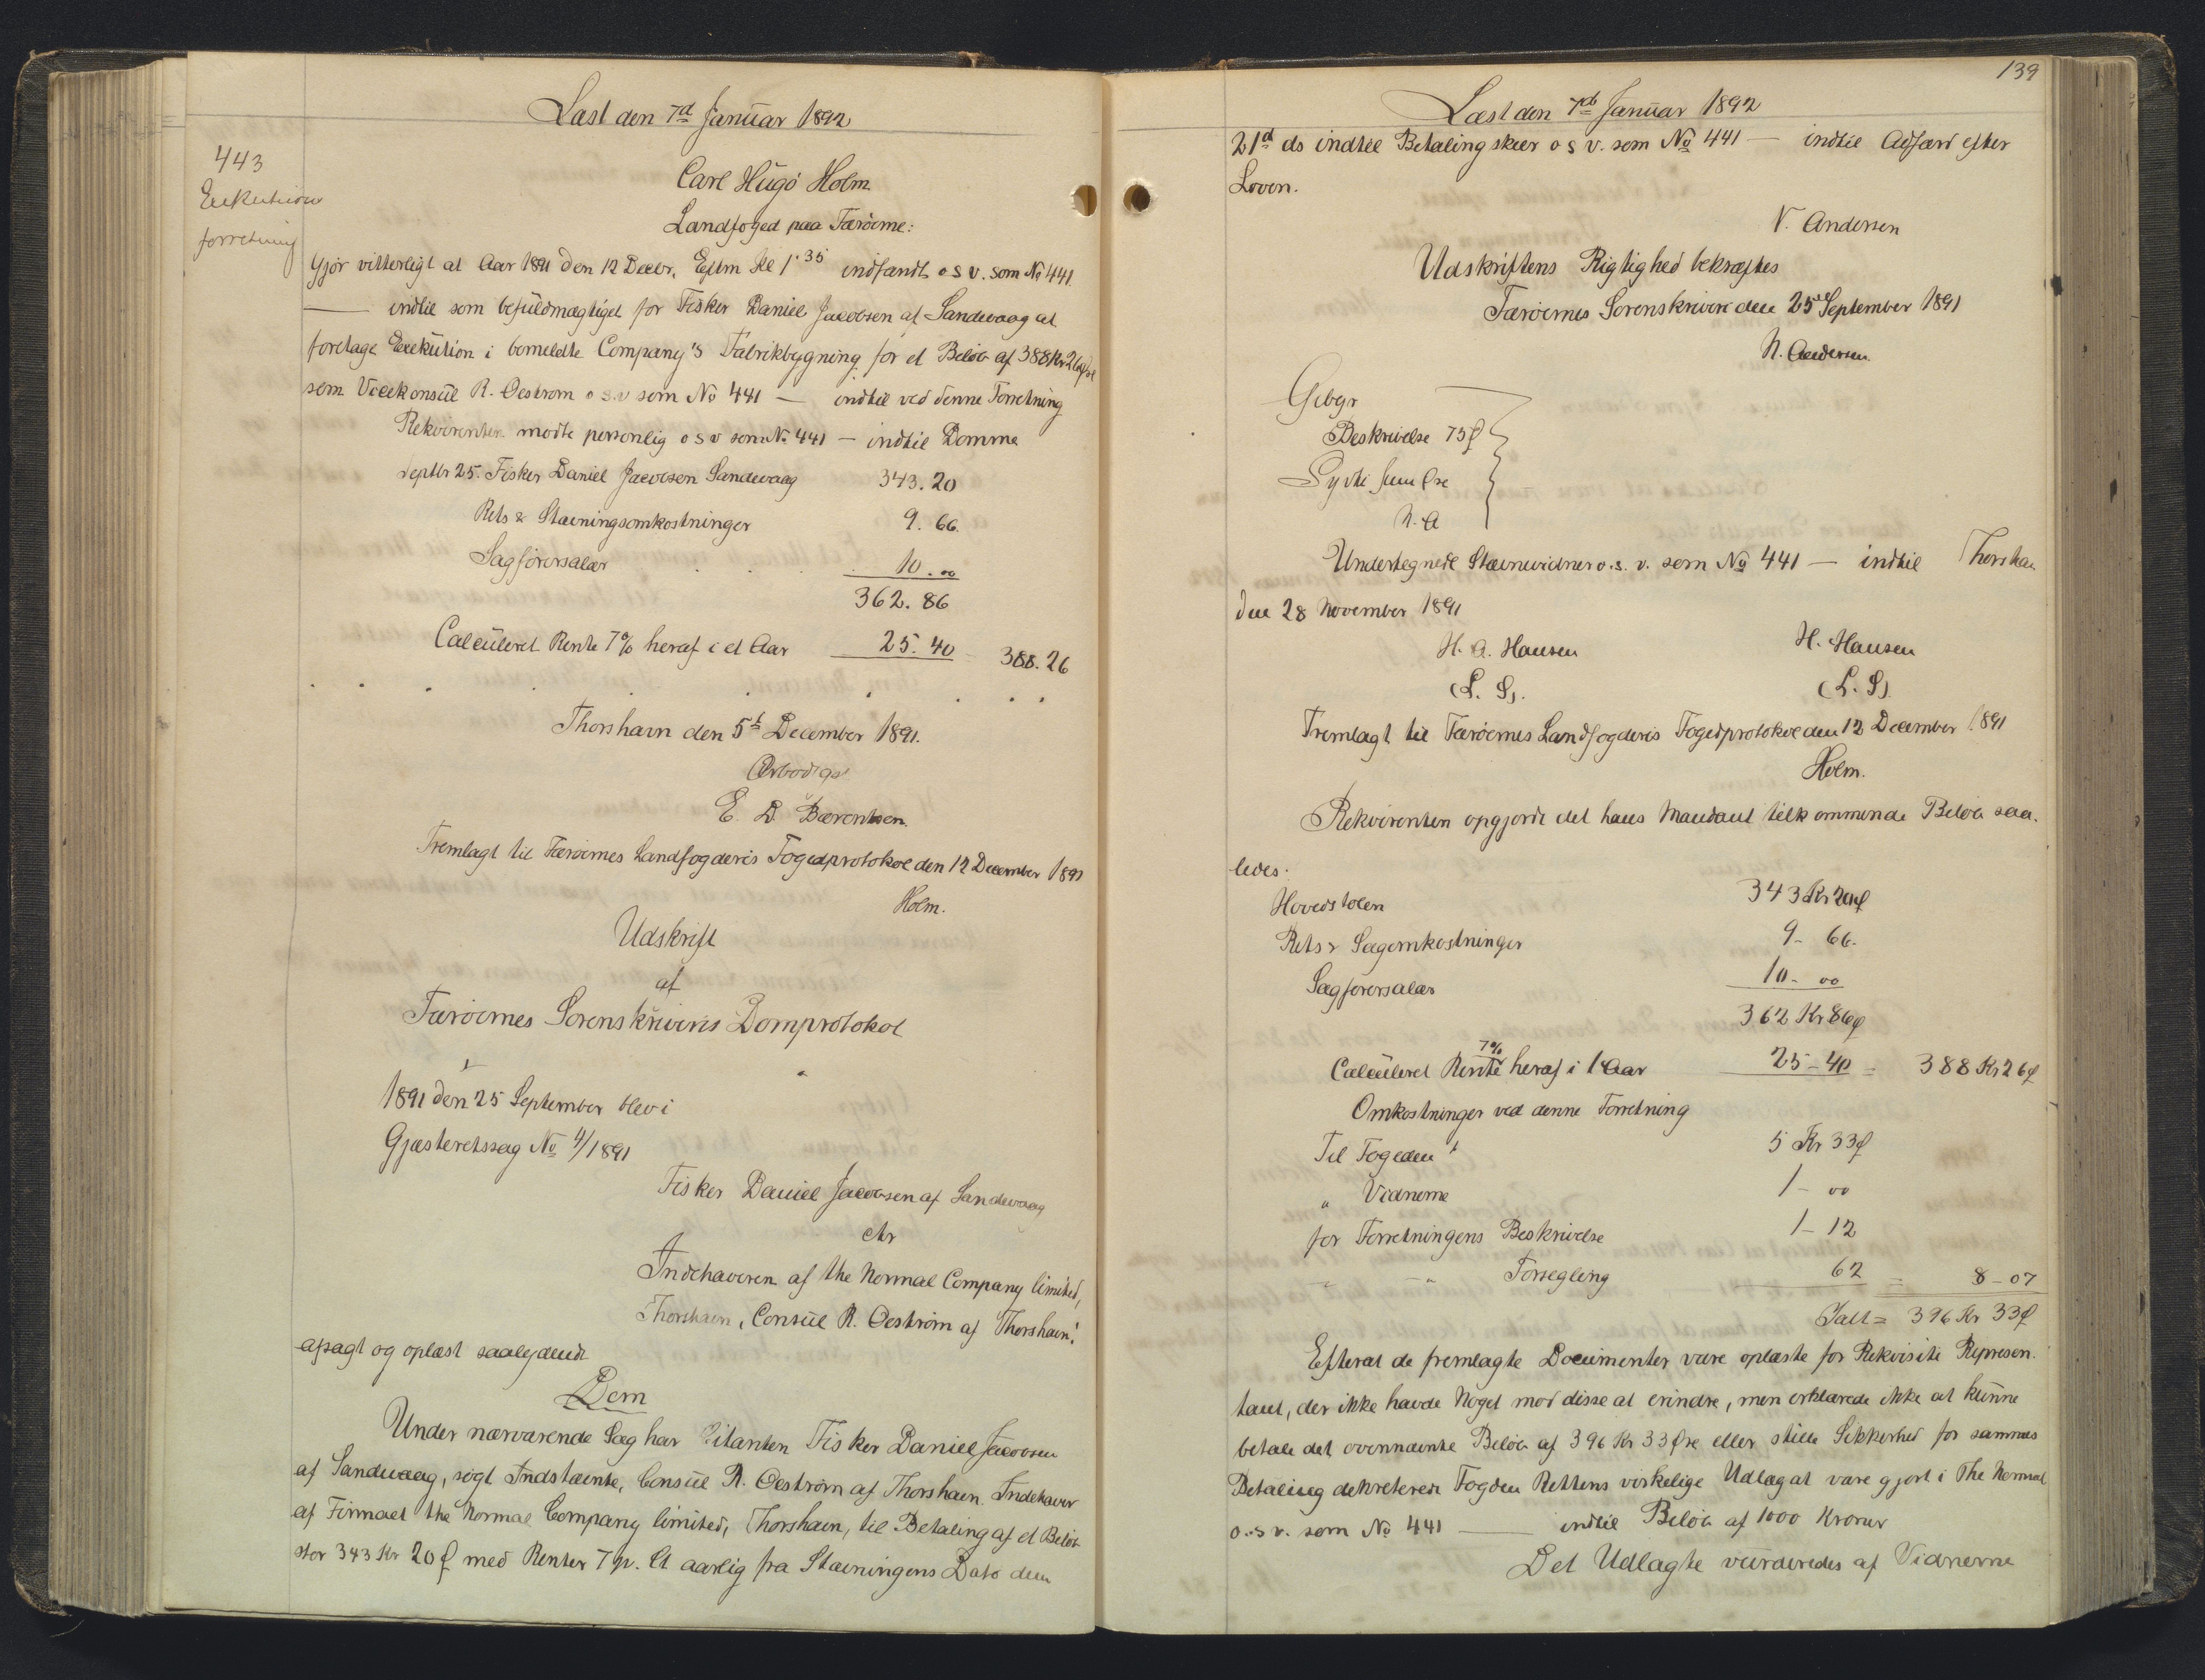 Læst den 7d Januar 1892
443
Exekutions
forretning
Carl Hugo Holm
Landfoged paa Færöerne:
Gjör vitterligt at Aar 1891 den 12 Decbr. Eftm Kl 1.35 indfandt o s v. som No 441.
— indtil som befuldmægtiget for Fisker Daniel Jacobsen af Sandevaag at
foretage Exekution i bemeldte Company's Fabrikbygning for et Belöb af 388 Kr 26 Øre
som Vicekonsul R. Oeström o s.v som No 441 — indtil ved denne Forretning
Rekvirenten mödte personlig o s v som No 441 — indtil Domme
Septbr 25. Fisker Daniel Jacobsen Sandevaag 343.20
Rets & Stævningsomkostninger 9. 66.
Sagförersalær 10.00
362.86
Calculeret Rente 7% heraf i et Aar 25.40 388.26
Thorshavn den 5t December 1891.
Ærbødigst
E. D. Bærentsen.
Fremlagt til Færöernes Landfogderis Fogedprotokol den 12 December 1891
Holm.
Udskrift
af
Færöernes Sorenskriveris Domprotokol
1891 den 25 September blev i
Gjæsteretssag No 4/1891
Fisker Daniel Jacobsen af Sandevaag
ctr
Indehaveren af the Normal Company limited,
Thorshavn, Consul R. Oeström af Thorshavn:
afsagt og oplæst saalydende
Dom
Under nærværende Sag har Citanten Fisker Daniel Jacobsen
af Sandevaag, sögt Indstævnte, Consul R. Oeström af Thorshavn. Indehaver
af Firmaet the Normal Company limited, Thorshavn, til Betaling af et Belöb
stor 343 Kr 20 Ø med Renter 7 p. Ct aarlig fra Stævningens Dato den
139
Læst den 7d Januar 1892
21d ds indtil Betaling skeer o s v. som No 441 — indtil Adfærd efter
Loven.
N. Andersen
Udskriftens Rigtighed bekræftes
Færöernes Sorenskriveri den 25d September 1891
N. Andersen.
Gebyr
Beskrivelse 75 Ø
Syvti fem Øre
N. A
Undertegnede Stævnevidner o. s. v. som No 441 — indtil Thorshavn
den 28 November 1891
H. A. Hansen H. Hansen
(L. S). (L. S)
Fremlagt til Færöernes Landfogderis Fogedprotokol den 12 December 1891
Holm.
Rekvirenten opgjorde det hans Mandant tilkommende Belöb saa-
ledes:
Hovedstolen 343 Kr 20 Ø
Rets & Sagomkostninger 9- 66-
Sagförersalær 10- 00
362 Kr 86 Ø
Calculeret 7% Rente heraf i 1 Aar 25-40 = 388 Kr 26 Ø
Omkostninger ved denne Forretning
Til Fogeden 5 Kr 33 Ø
" Vidnerne 1- 00
for Forretningens Beskrivelse 1-12
" " Forsegling 62 = 8-07
Ialt = 396 Kr 33 Ø
Efterat de fremlagte Documenter vare oplæste for Rekvisiti Represen-
tant, der ikke havde Noget mod disse at erindre, men erklærede ikke at kunne
betale det ovennævnte Belöb af 396 Kr 33 Øre eller stille Sikkerhed for sammes
Betaling dekreterede Fogden Rettens virkelige Udlæg at være gjort i The Normal
o. s v. som No 441 — indtil Belöb af 1000 Kroner
Det Udlagte vurderedes af Vidnerne